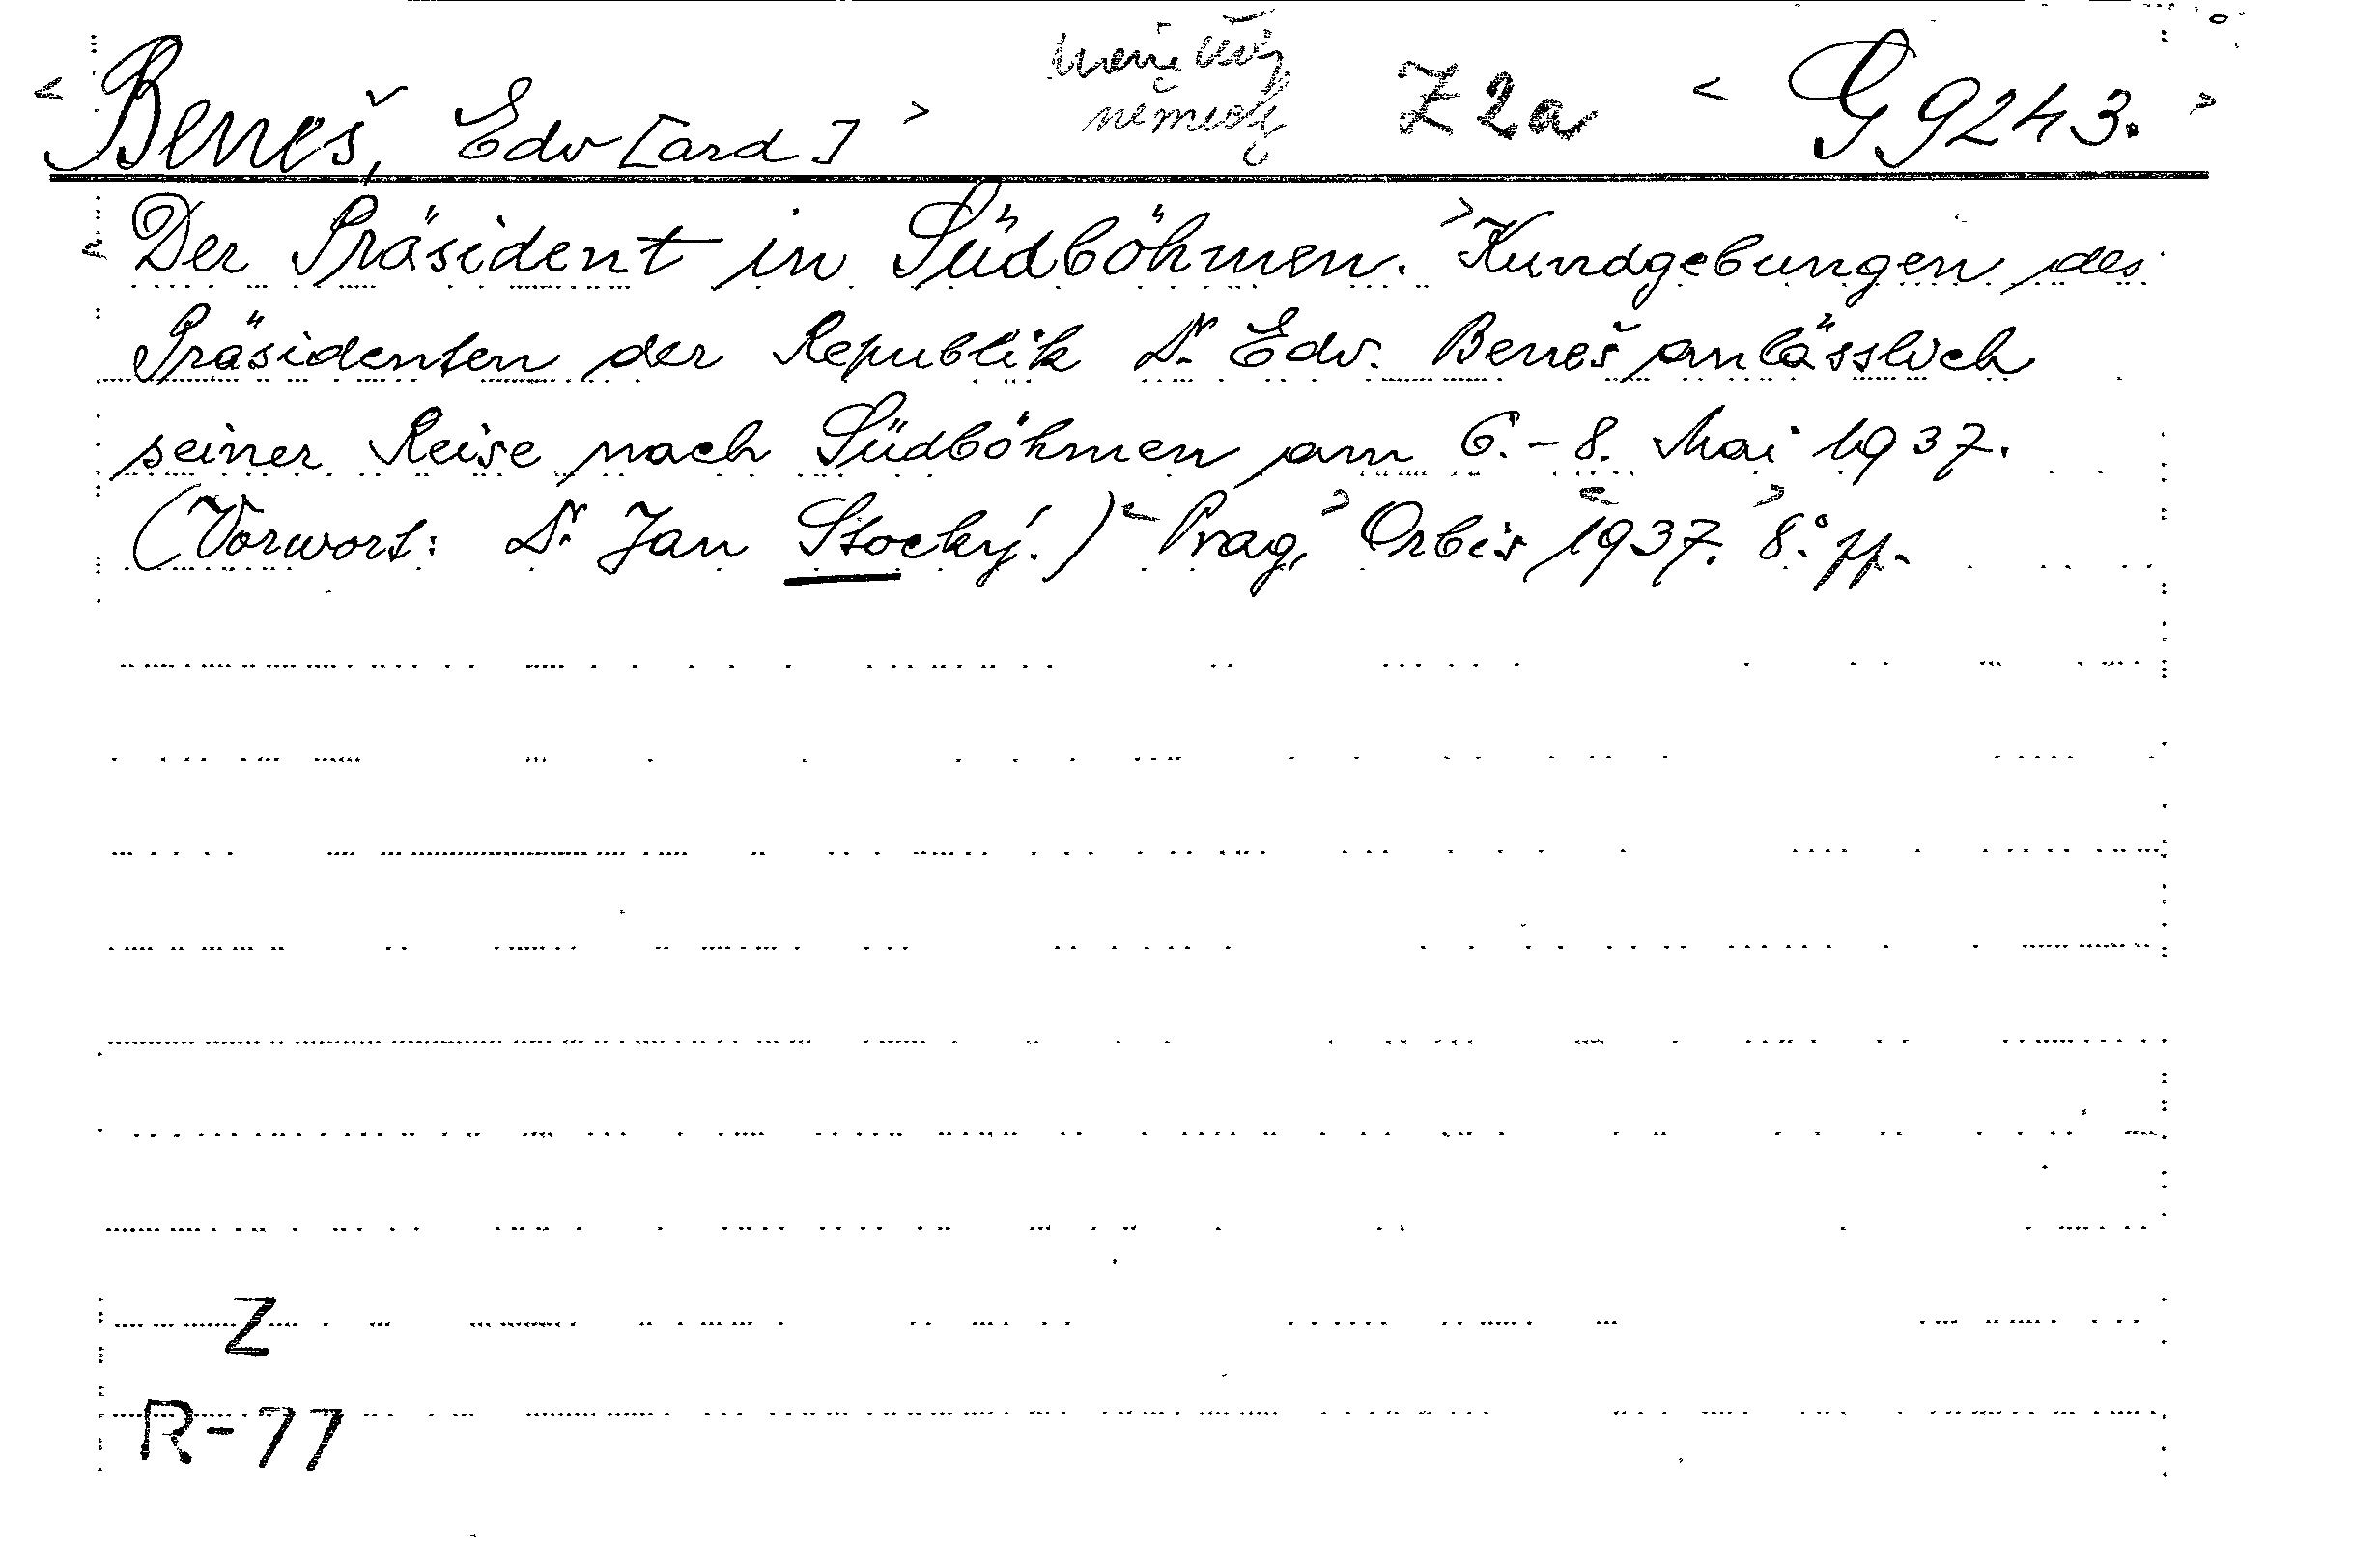 < Beneš, Edv[ard] > německy Z2a < G 9243. >
< Der Präsident in Südböhmen. > Kundgebungen des
Präsidenten der Republik Dr. Edv. Beneš anlässlich
seiner Reise nach Südböhmen am 6.-8. Mai 1937.
(Vorwort: Dr. Jan Stocký.) < Prag, > Orbis < 1937. > 8.° pp.
Z
R-77